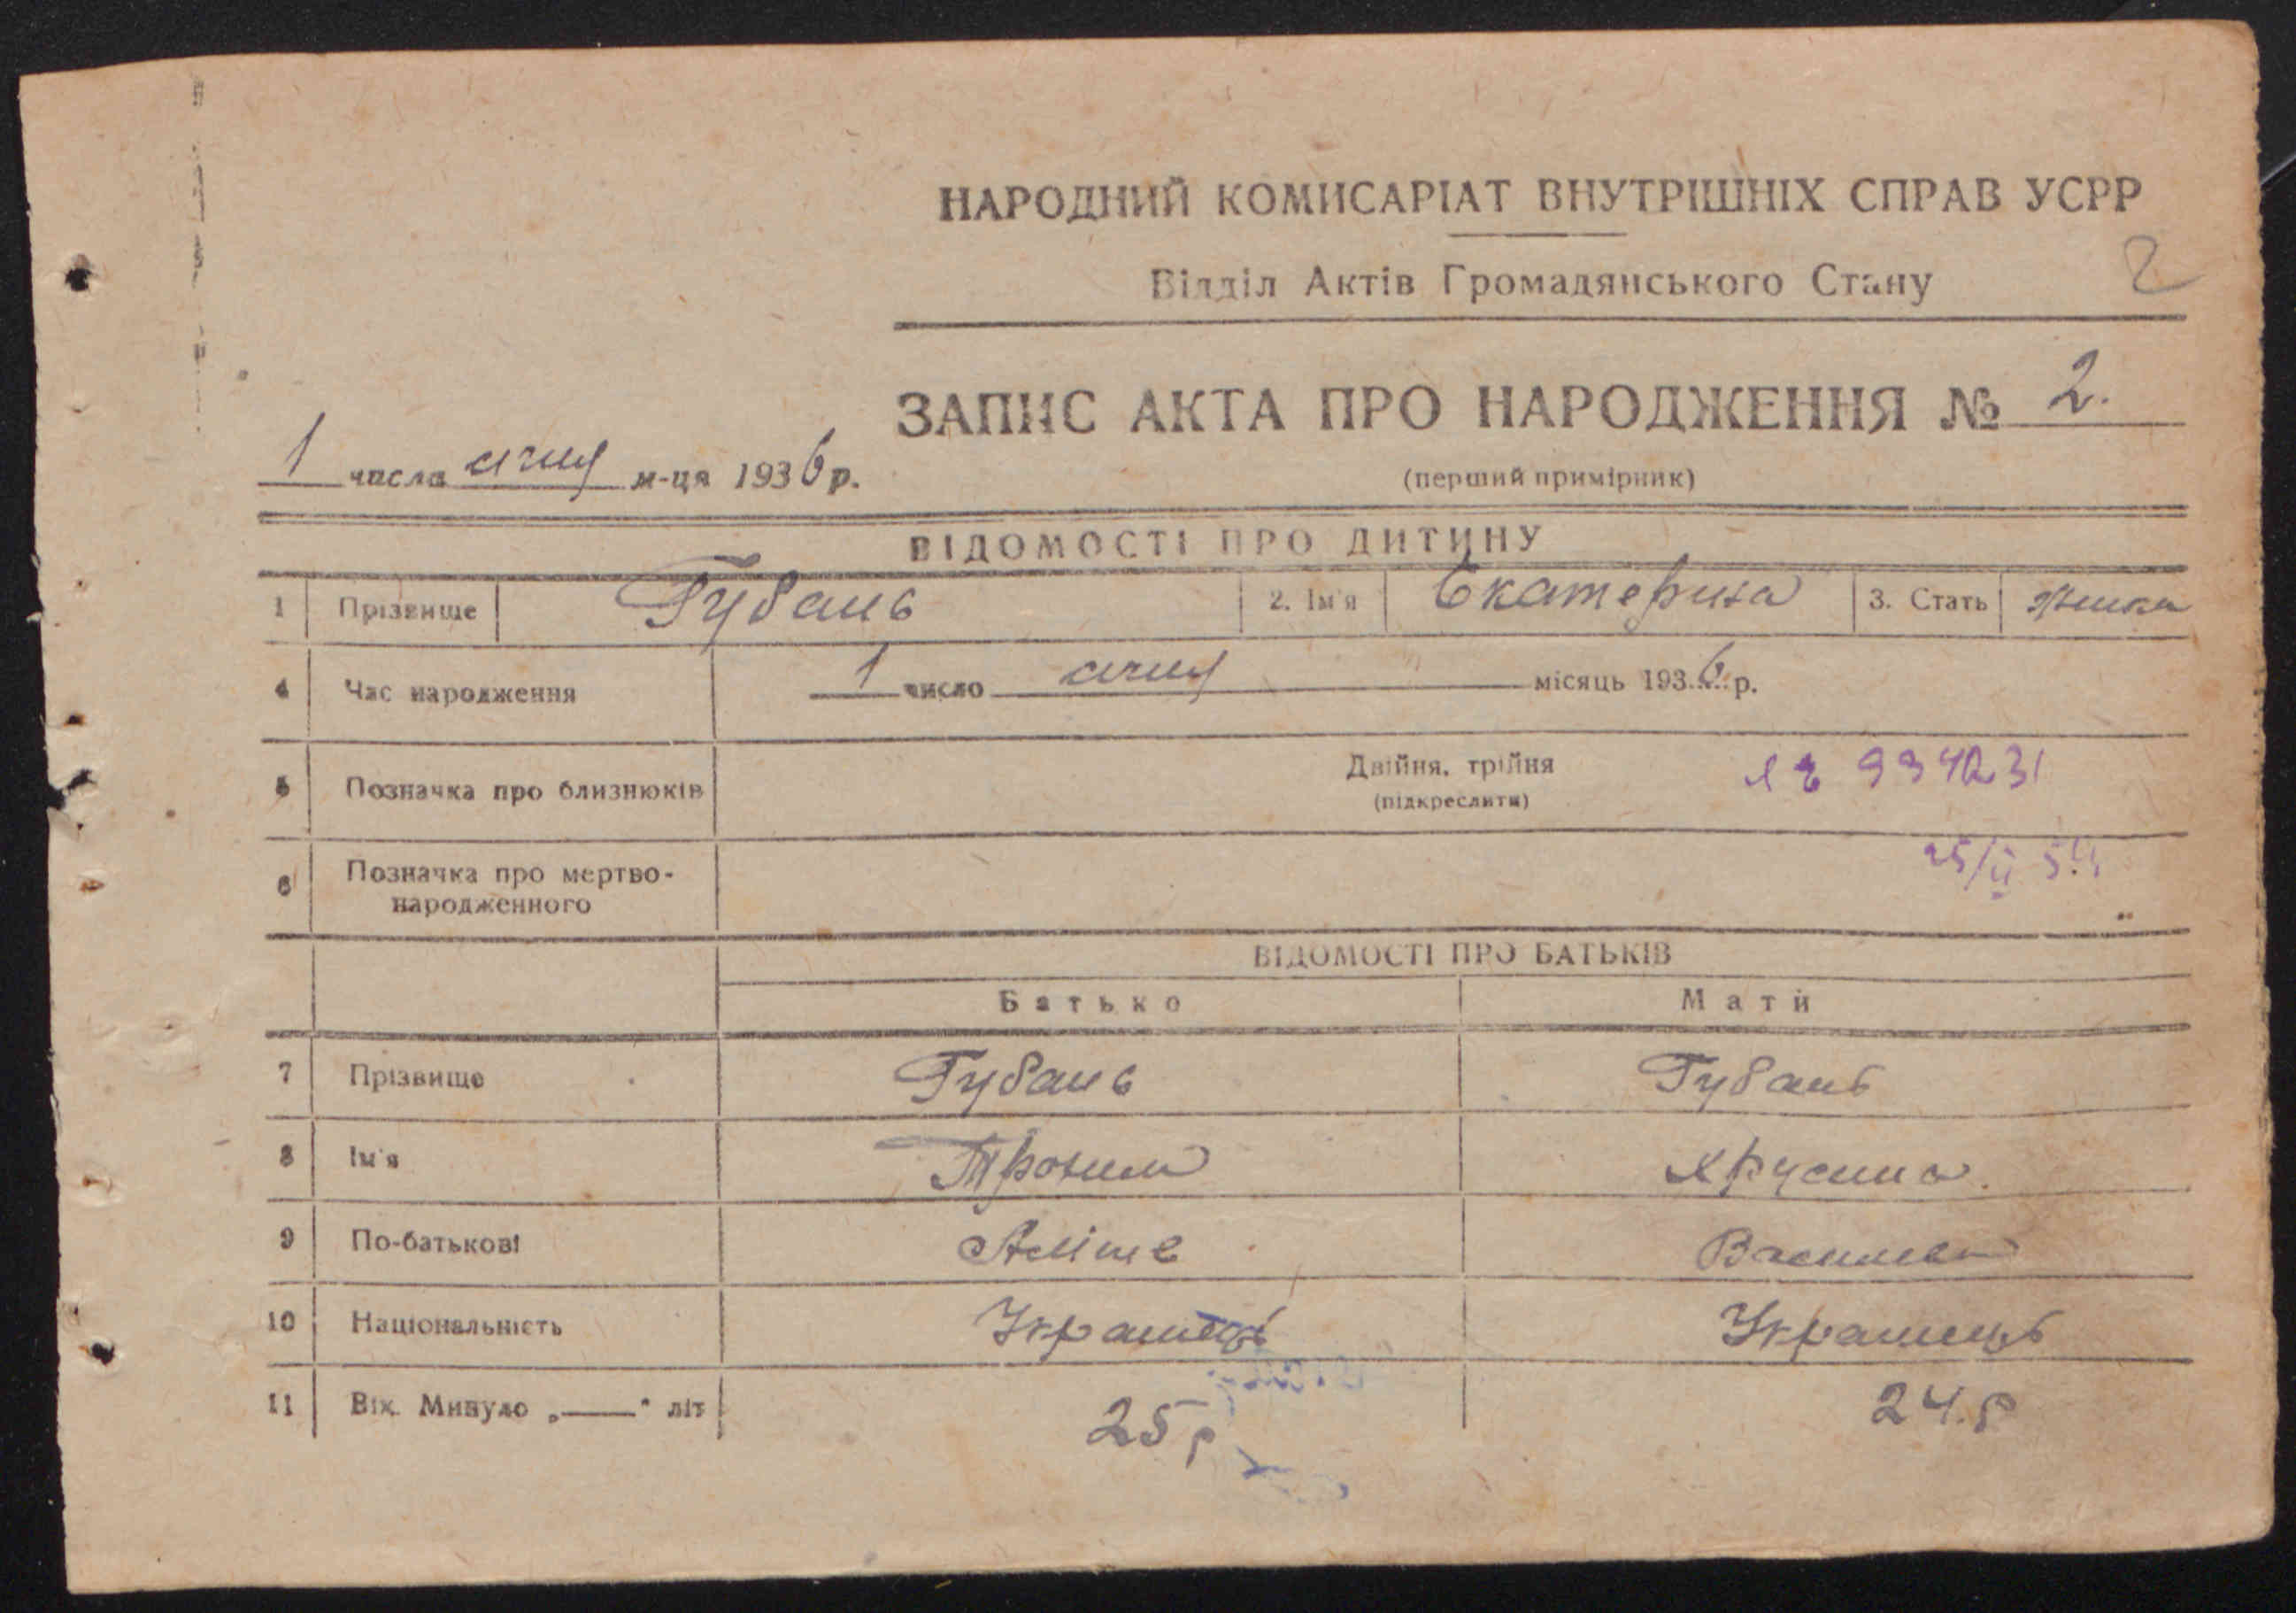 НАРОДНИЙ КОМИСАРІАТ ВНУТРІШНІХ СПРАВ УСРР
Відділ Актів Громадянського Стану
2
ЗАПИС АКТА ПРО НАРОДЖЕННЯ № 2.
1 числа січня м-ця 1936 р.
(перший примірник)
ВІДОМОСТІ ПРО ДИТИНУ
1 Прізвище Губань 2. Ім'я Екатерина 3. Стать
4 Час народження 1 число січня місяць 1936 р.
5 Позначка про близнюків Двійня, трійня
(підкреслити)
6 Позначка про мертво-
народженного
ВІДОМОСТІ ПРО БАТЬКІВ
Батько Мати
7 Прізвище Губань Губань
8 Ім'я
9 По-батькові
10 Національність Українець Українець
11 Вік. Минуло „——“ літ 25 р 24. р